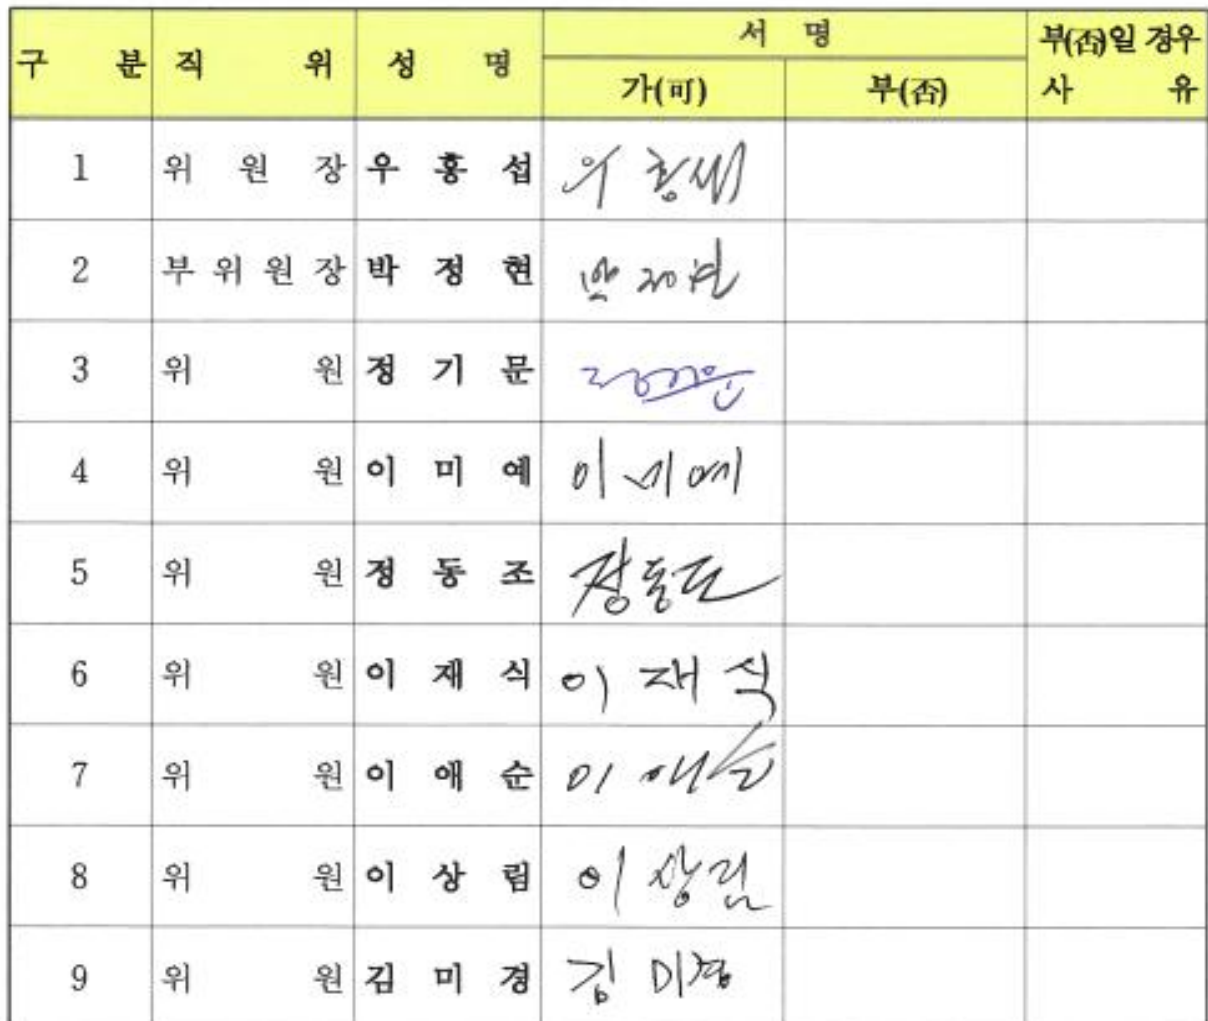 구 분 직 위 성 명 서 명 부(否)일 경우
가(可) 부(否) 사 유
1 위 원 장 우 홍 섭 우홍섭
2 부 위 원 장 박 정 현 박정현
3 위 원 정 기 문 정기문
4 위 원 이 미 예 이미예
5 위 원 정 동 조 정동조
6 위 원 이 재 식 이재식
7 위 원 이 애 순 이애순
8 위 원 이 상 림 이상림
9 위 원 김 미 경 김미경